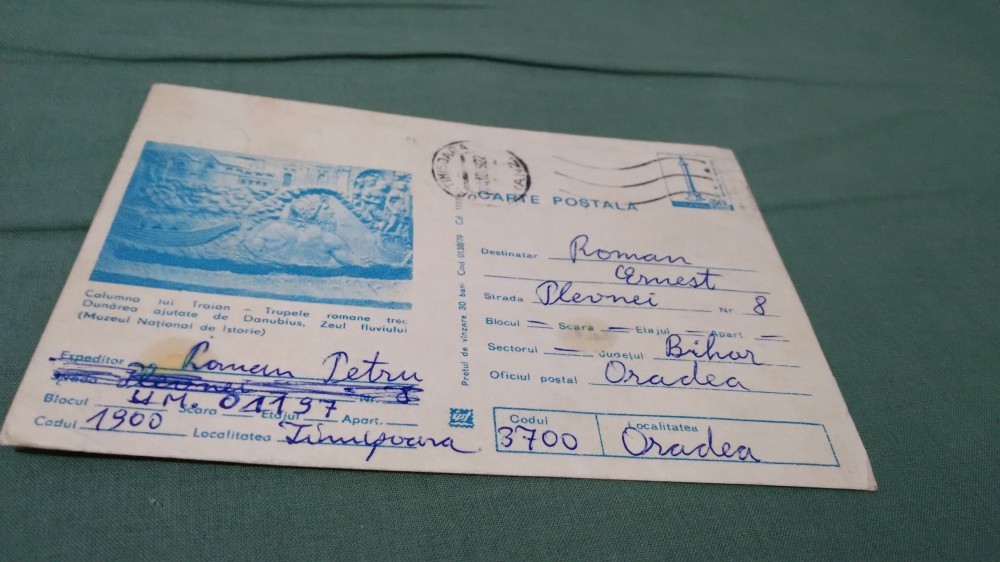 Columna lui Traian – Trupele romane trec
Dunărea ajutate de Danubius, Zeul fluviului
(Muzeul Național de Istorie)
Expeditor Roman Petru
Strada Plevnei Nr. 8
U.M. 01197
Blocul Scara Etajul Apart.
Codul 1900 Localitatea Timișoara
Prețul de vînzare 30 bani Cod 0138/79
TIMIȘOARA
CARTE POȘTALĂ
Destinatar Roman
Ernest
Strada Plevnei Nr. 8
Blocul – Scara – Etajul – Apart. –
Sectorul – Județul Bihor
Oficiul poștal Oradea
Codul Localitatea
3700 Oradea